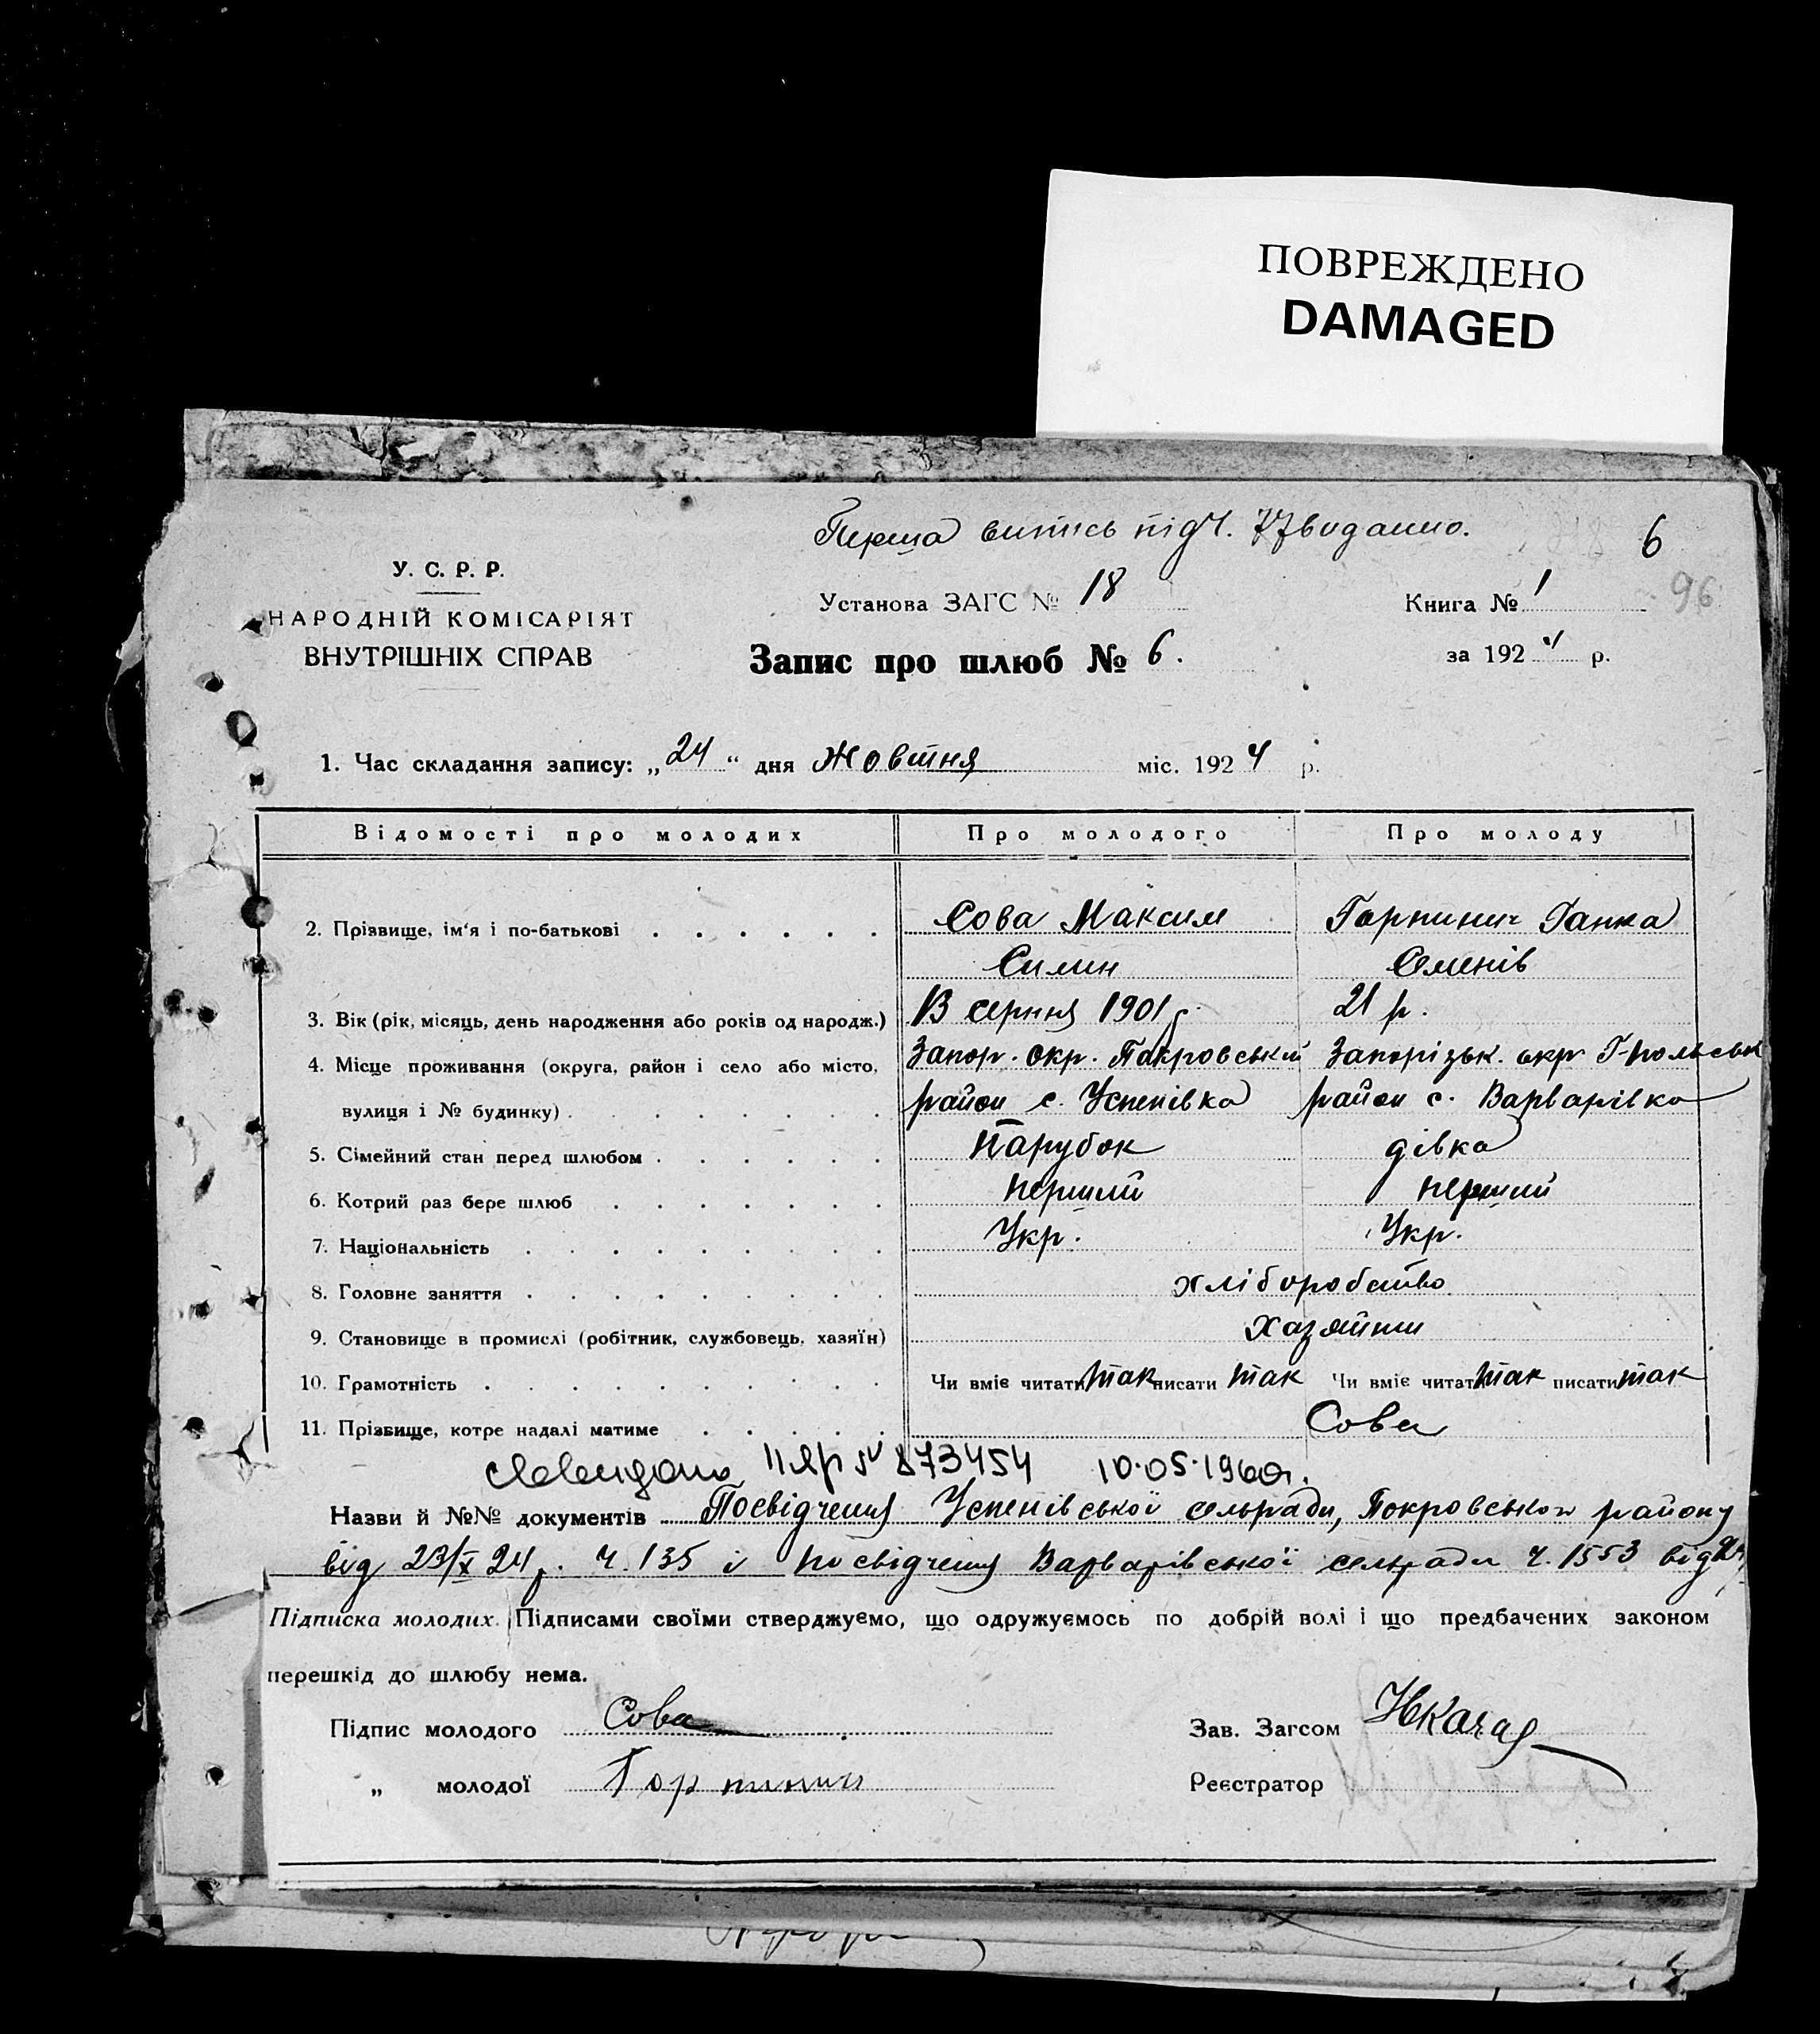 ПОВРЕЖДЕНО
DAMAGED
Перша випись під Ч. 77 видано.
6
У. С. Р. Р.
НАРОДНІЙ КОМІСАРІЯТ
ВНУТРІШНІХ СПРАВ
Установа ЗАГС № 18
Книга № 1
96
Запис про шлюб № 6.
за 1924 р.
1. Час складання запису: „24“ дня Жовтня міс. 1924 р.
Відомості про молодих Про молодого Про молоду
2. Прізвище, ім'я і по-батькові Сова Максим Горпинич Ганка
Силин Семенів
3. Вік (рік, місяць, день народження або років од народж.) 13 серпня 1901 р. 21 р.
4. Місце проживання (округа, район і село або місто, Запор. окр. Покровський Запорізьк. окр. Г-польськ
вулиця і № будинку) район с. Успенівка район с. Варварівка
5. Сімейний стан перед шлюбом Парубок дівка
6. Котрий раз бере шлюб перший перший
7. Національність Укр. Укр.
8. Головне заняття хліборобство
9. Становище в промислі (робітник, службовець, хазяїн) Хазяїни
10. Грамотність Чи вміє читати так писати так Чи вміє читати так писати так
11. Прізвище, котре надалі матиме Сова
№ 873454 10.05.1960г.
Назви й №№ документів Посвідчення Успенівської сельради, Покровськом району
від 23/X 24 р. Ч. 135 і посвідчення Варварівської сельради Ч. 1553 від
Підписка молодих. Підписами своїми стверджуємо, що одружуємось по добрій волі і що предбачених законом
перешкід до шлюбу нема.
Підпис молодого Сова
Зав. Загсом
„ молодої Горпинич
Реєстратор